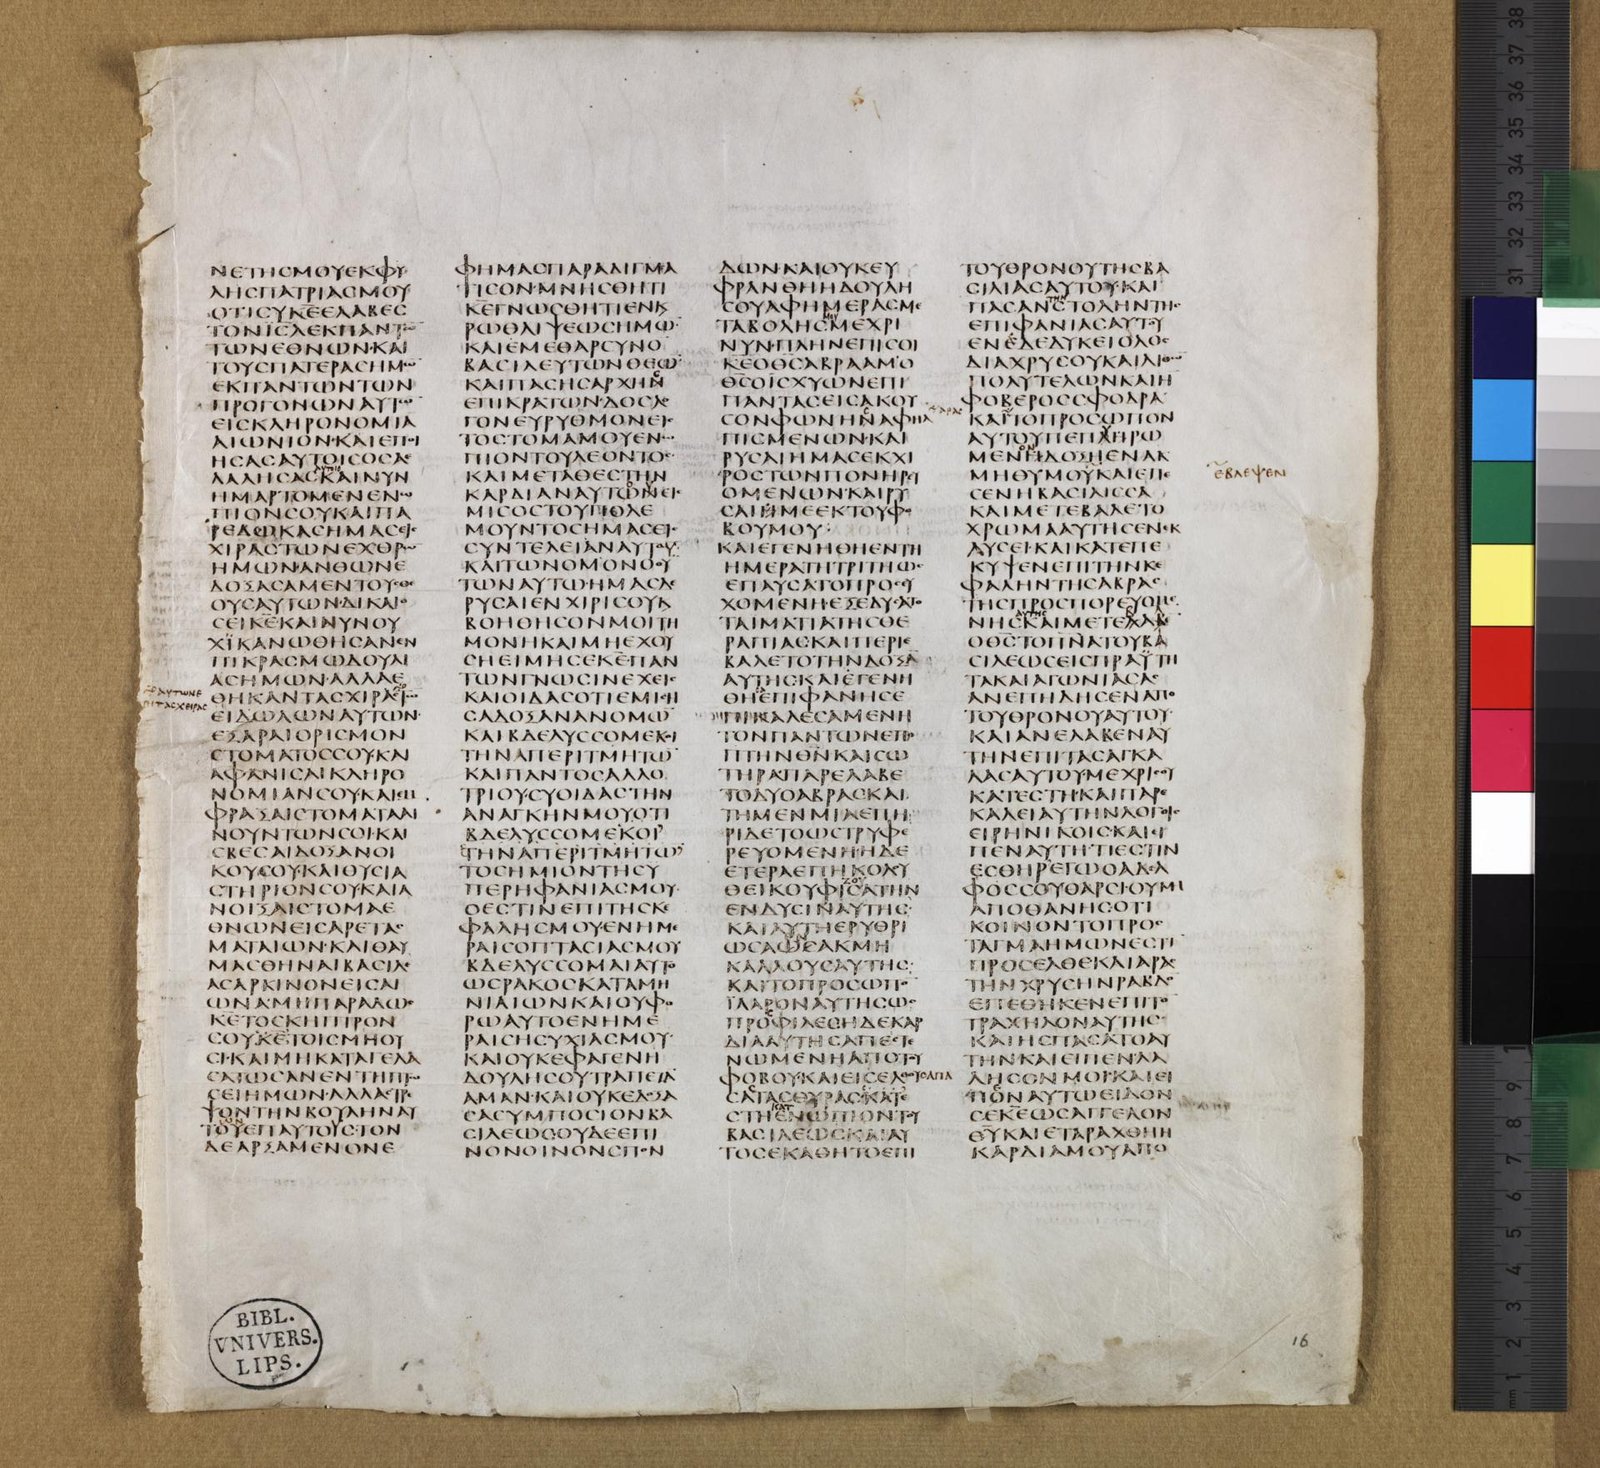 ΝΕΤΗСΜΟΥΕΚΦΥ
ΛΗСΠΑΤΡΙΑСΜΟΥ
ΟΤΙСΥΚΕΕΛΑΒΕС
ΤΟΝΙСΛΕΚΠΑΝΤΩ
ΤΩΝΕΘΝΩΝ·ΚΑΙ
ΤΟΥСΠΑΤΕΡΑСΗΜΩ
ΕΚΠΑΝΤΩΝΤΩΝ
ΠΡΟΓΟΝΩΝΑΥΤΩ
ΕΙСΚΛΗΡΟΝΟΜΙΑ
ΑΙΩΝΙΟΝ·ΚΑΙΕΠΟΙ
ΗСΑСΑΥΤΟΙСΟСΑΕ
ΛΑΛΗСΑСΚΑΙΝΥΝ
ΗΜΑΡΤΟΜΕΝΕΝΩ
ΠΙΟΝСΟΥΚΑΙΠΑ
ΡΕΔΩΚΑСΗΜΑСΕΙС
ΧΙΡΑСΤΩΝΕΧΘΡΩ
ΗΜΩΝΑΝΘΩΝΕ
ΔΟΞΑСΑΜΕΝΤΟΥСΘΕ
ΟΥСΑΥΤΩΝ·ΔΙΚΑΙΟ
СΕΙΚΕΚΑΙΝΥΝΟΥ
ΧΪΚΑΝΩΘΗСΑΝΕΝ
ΠΙΚΡΑСΜΩΔΟΥΛΙ
ΑСΗΜΩΝ·ΑΛΛΑΕ
ΘΗΚΑΝΤΑСΧΙΡΑС
ΕΙΔΩΛΩΝΑΥΤΩΝ
ΕΞΑΡΑΙΟΡΙСΜΟΝ
СΤΟΜΑΤΟССΟΥΚΑΙ
ΑΦΑΝΙСΑΙΚΛΗΡΟ
ΝΟΜΙΑΝСΟΥΚΑΙΕΜ
ΦΡΑΞΑΙСΤΟΜΑΤΑΑΙ
ΝΟΥΝΤΩΝСΟΙ·ΚΑΙ
СΒΕСΑΙΔΟΞΑΝΟΙ
ΚΟΥСΟΥ·ΚΑΙΘΥСΙΑ
СΤΗΡΙΟΝСΟΥΚΑΙΑ
ΝΟΙΞΑΙСΤΟΜΑΕ
ΘΝΩΝΕΙСΑΡΕΤΑС
ΜΑΤΑΙΩΝ·ΚΑΙΘΑΥ
ΜΑСΘΗΝΑΙΒΑСΙΛΕ
ΑСΑΡΚΙΝΟΝΕΙСΑΙ
ΩΝΑΜΗΠΑΡΑΔΩС
ΚΕΤΟСΚΗΠΤΡΟΝ
СΟΥΚΕΤΟΙСΜΗΟΥ
СΙ·ΚΑΙΜΗΚΑΤΑΓΕΛΑ
СΑΤΩСΑΝΕΝΤΗΠΤΩ
СΕΙΗΜΩΝ·ΑΛΛΑСΤΡΕ
ΨΟΝΤΗΝΒΟΥΛΗΝΑΥ
ΤΟΥΕΠΑΥΤΟΥСΤΟΝ
ΔΕΑΡΞΑΜΕΝΟΝΕ
ΦΗΜΑСΠΑΡΑΔΙΓΜΑ
ΤΙСΟΝ·ΜΝΗСΘΗΤΙ
ΚΕΓΝΩСΘΗΤΙΕΝΚ
ΡΩΘΛΙΨΕΩСΗΜΩ
ΚΑΙΕΜΕΘΑΡСΥΝΟ
ΒΑСΙΛΕΥΤΩΝΘΕΩ
ΚΑΙΠΑСΗСΑΡΧΗС
ΕΠΙΚΡΑΤΩΝ·ΔΟСΛΟ
ΓΟΝΕΥΡΥΘΜΟΝΕΙС
ΤΟСΤΟΜΑΜΟΥΕΝΩ
ΠΙΟΝΤΟΥΛΕΟΝΤΟС
ΚΑΙΜΕΤΑΘΕСΤΗΝ
ΚΑΡΔΙΑΝΑΥΤΩΝΕΙС
ΜΙСΟСΤΟΥΠΟΛΕ
ΜΟΥΝΤΟСΗΜΑСΕΙС
СΥΝΤΕΛΕΙΑΝΑΥΤΟΥ
ΚΑΙΤΩΝΟΜΟΝΟΟΥ
ΤΩΝΑΥΤΩΗΜΑСΔΕ
ΡΥСΑΙΕΝΧΙΡΙСΟΥΚ
ΒΟΗΘΗСΟΝΜΟΙΤΗ
ΜΟΝΗΚΑΙΜΗΕΧΟΥ
СΗΕΙΜΗСΕΚΕΠΑΝ
ΤΩΝΓΝΩСΙΝΕΧΕΙС
ΚΑΙΟΙΔΑСΟΤΙΕΜΙСΗ
СΑΔΟΞΑΝΑΝΟΜΩ
ΚΑΙΒΔΕΛΥССΟΜΕΚΟΙ
ΤΗΝΑΠΕΡΙΤΜΗΤΩ
ΚΑΙΠΑΝΤΟСΑΛΛΟ
ΤΡΙΟΥ·СΥΟΙΔΑСΤΗΝ
ΑΝΑΓΚΗΝΜΟΥΟΤΙ
ΒΔΕΛΥССΟΜΕΚΟΙΤ
ΤΗΝΑΠΕΡΙΤΜΗΤΩ
ΤΟСΗΜΙΟΝΤΗСΥ
ΠΕΡΗΦΑΝΙΑСΜΟΥ·
ΟΕСΤΙΝΕΠΙΤΗСΚΕ
ΦΑΛΗСΜΟΥΕΝΗΜΕ
ΡΑΙСΟΠΤΑСΙΑСΜΟΥ
ΒΔΕΛΥССΟΜΑΙΑΥΤΟ
ΩСΡΑΚΟСΚΑΤΑΜΗ
ΝΙΑΙΩΝΚΑΙΟΥΦΟ
ΡΩΑΥΤΟΕΝΗΜΕ
ΡΑΙСΗСΥΧΙΑСΜΟΥ·
ΚΑΙΟΥΚΕΦΑΓΕΝΗ
ΔΟΥΛΗСΟΥΤΡΑΠΕΖΑ
ΑΜΑΝ·ΚΑΙΟΥΚΕΔΟΞΑ
СΑСΥΜΠΟСΙΟΝΒΑ
СΙΛΕΩСΟΥΔΕΕΠΙ
ΝΟΝΟΙΝΟΝСΠΟΝ
ΔΩΝ·ΚΑΙΟΥΚΕΥ
ΦΡΑΝΘΗΗΔΟΥΛΗ
СΟΥΑΦΗΜΕΡΑСΜΕ
ΤΑΒΟΛΗСΜΕΧΡΙ
ΝΥΝ·ΠΛΗΝΕΠΙСΟΙ
ΚΕΟΘСΑΒΡΑΑΜ·Ο
ΘСΟΙСΧΥΩΝΕΠΙ
ΠΑΝΤΑСΕΙСΑΚΟΥ
СΟΝΦΩΝΗΝΑΦΗΛ
ΠΙСΜΕΝΩΝ·ΚΑΙ
ΡΥСΑΙΗΜΑСΕΚΧΙ
ΡΟСΤΩΝΠΟΝΗΡΕΥ
ΟΜΕΝΩΝ·ΚΑΙΡΥ
СΑΙΗΜΕΕΚΤΟΥΦΟ
ΒΟΥΜΟΥ:
ΚΑΙΕΓΕΝΗΘΗΕΝΤΗ
ΗΜΕΡΑΤΗΤΡΙΤΗΩС
ΕΠΑΥСΑΤΟΠΡΟСΕΥ
ΧΟΜΕΝΗ·ΕΞΕΔΥСΑΤΟ
ΤΑΙΜΑΤΙΑΤΗСΘΕ
ΡΑΠΙΑСΚΑΙΠΕΡΙΕ
ΒΑΛΕΤΟΤΗΝΔΟΞΑ
ΑΥΤΗСΚΑΙΕΓΕΝΗ
ΘΗΕΠΙΦΑΝΗСΕ
ΠΙΚΑΛΕСΑΜΕΝΗ
ΤΟΝΠΑΝΤΩΝΕΠΟ
ΠΤΗΝΘΝΚΑΙСΩ
ΤΗΡΑΠΑΡΕΛΑΒΕ
ΤΟΔΥΟΑΒΡΑСΚΑΙ
ΤΗΜΕΝΜΙΑΕΠΗ
ΡΙΔΕΤΟΩСΤΡΥΦΕ
ΡΕΥΟΜΕΝΗ·ΗΔΕ
ΕΤΕΡΑΕΠΗΚΟΛΥ
ΘΕΙΚΟΥΦΙСΑΤΗΝ
ΕΝΔΥСΙΝΑΥΤΗС·
ΚΑΙΑΥΤΗΕΡΥΘΡΙ
ΩСΑΩСΑΚΜΗ
ΚΑΛΛΟΥСΑΥΤΗС·
ΚΑΙΤΟΠΡΟСΩΠΟ
ΪΛΑΡΟΝΑΥΤΗСΩС
ΠΡΟСΦΙΛΕСΗΔΕΚΑΡ
ΔΙΑΑΥΤΗСΑΠΕСΤΕ
ΝΩΜΕΝΗΑΠΟΤΟΥ
ΦΟΒΟΥ·ΚΑΙΕΙСΕΛΘΟΥСΑΠΑ
СΑΤΑСΘΥΡΑСΚΑΤΕ
СΤΗΕΝΩΠΙΟΝΤΟΥ
ΒΑСΙΛΕΩСΚΑΙΑΥ
ΤΟСΕΚΑΘΗΤΟΕΠΙ
ΤΟΥΘΡΟΝΟΥΤΗСΒΑ
СΙΛΙΑСΑΥΤΟΥ·ΚΑΙ
ΠΑСΑΝСΤΟΛΗΝΤΗС
ΕΠΙΦΑΝΙΑСΑΥΤΟΥ
ΕΝΕΔΕΔΥΚΕΙΟΛΟС
ΔΙΑΧΡΥСΟΥΚΑΙΛΙΘΩ
ΠΟΛΥΤΕΛΩΝΚΑΙΗ
ΦΟΒΕΡΟССΦΟΔΡΑ·
ΚΑΙΤΟΠΡΟСΩΠΟΝ
ΑΥΤΟΥΠΕΠΥΡΩ
ΜΕΝΗΔΟΞΗΕΝΑΚ
ΜΗΘΥΜΟΥΚΑΙΕΠΕ
СΕΝΗΒΑСΙΛΙССΑ
ΚΑΙΜΕΤΕΒΑΛΕΤΟ
ΧΡΩΜΑΑΥΤΗСΕΝΕΚ
ΛΥСΕΙ·ΚΑΙΚΑΤΕΠΕ
ΚΥΨΕΝΕΠΙΤΗΝΚΕ
ΦΑΛΗΝΤΗСΑΒΡΑС
ΤΗСΠΡΟСΠΟΡΕΥΟΜΕ
ΝΗСΚΑΙΜΕΤΕΒΑΛΕ
ΟΘСΤΟΠΝΑΤΟΥΒΑ
СΙΛΕΩСΕΙСΠΡΑΫΤΗ
ΤΑΚΑΙΑΓΩΝΙΑСΑС
ΑΝΕΠΗΔΗСΕΝΑΠΟ
ΤΟΥΘΡΟΝΟΥΑΥΤΟΥ·
ΚΑΙΑΝΕΛΑΒΕΝΑΥ
ΤΗΝΕΠΙΤΑСΑΓΚΑ
ΛΑСΑΥΤΟΥ·ΜΕΧΡΙСΟΥ
ΚΑΤΕСΤΗ·ΚΑΙΠΑΡΕ
ΚΑΛΕΙΑΥΤΗΝΛΟΓΟΙС
ΕΙΡΗΝΙΚΟΙСΚΑΙΕΙ
ΠΕΝΑΥΤΗ·ΤΙΕСΤΙΝ
ΕСΘΗΡΕΓΩΟΑΔΕΛ
ΦΟССΟΥΘΑΡСΙΟΥΜΗ
ΑΠΟΘΑΝΗСΟΤΙ
ΚΟΙΝΟΝΤΟΠΡΟС
ΤΑΓΜΑΗΜΩΝΕСΤΙ
ΠΡΟСΕΛΘΕΚΑΙΑΡΑС
ΤΗΝΧΡΥСΗΝΡΑΒΔΟ
ΕΠΕΘΗΚΕΝΕΠΙΤΟ
ΤΡΑΧΗΛΟΝΑΥΤΗС·
ΚΑΙΗСΠΑСΑΤΟΑΥ
ΤΗΝ·ΚΑΙΕΙΠΕΝ·ΛΑ
ΛΗСΟΝΜΟΙ·ΚΑΙΕΙ
ΠΟΝΑΥΤΩΕΙΔΟΝ
СΕΚΕΩСΑΓΓΕΛΟΝ
ΘΥΚΑΙΕΤΑΡΑΧΘΗΗ
ΚΑΡΔΙΑΜΟΥΑΠΟ
ΕΒΛΕΨΕΝ
BIBL.
VNIVERS.
LIPS.
16